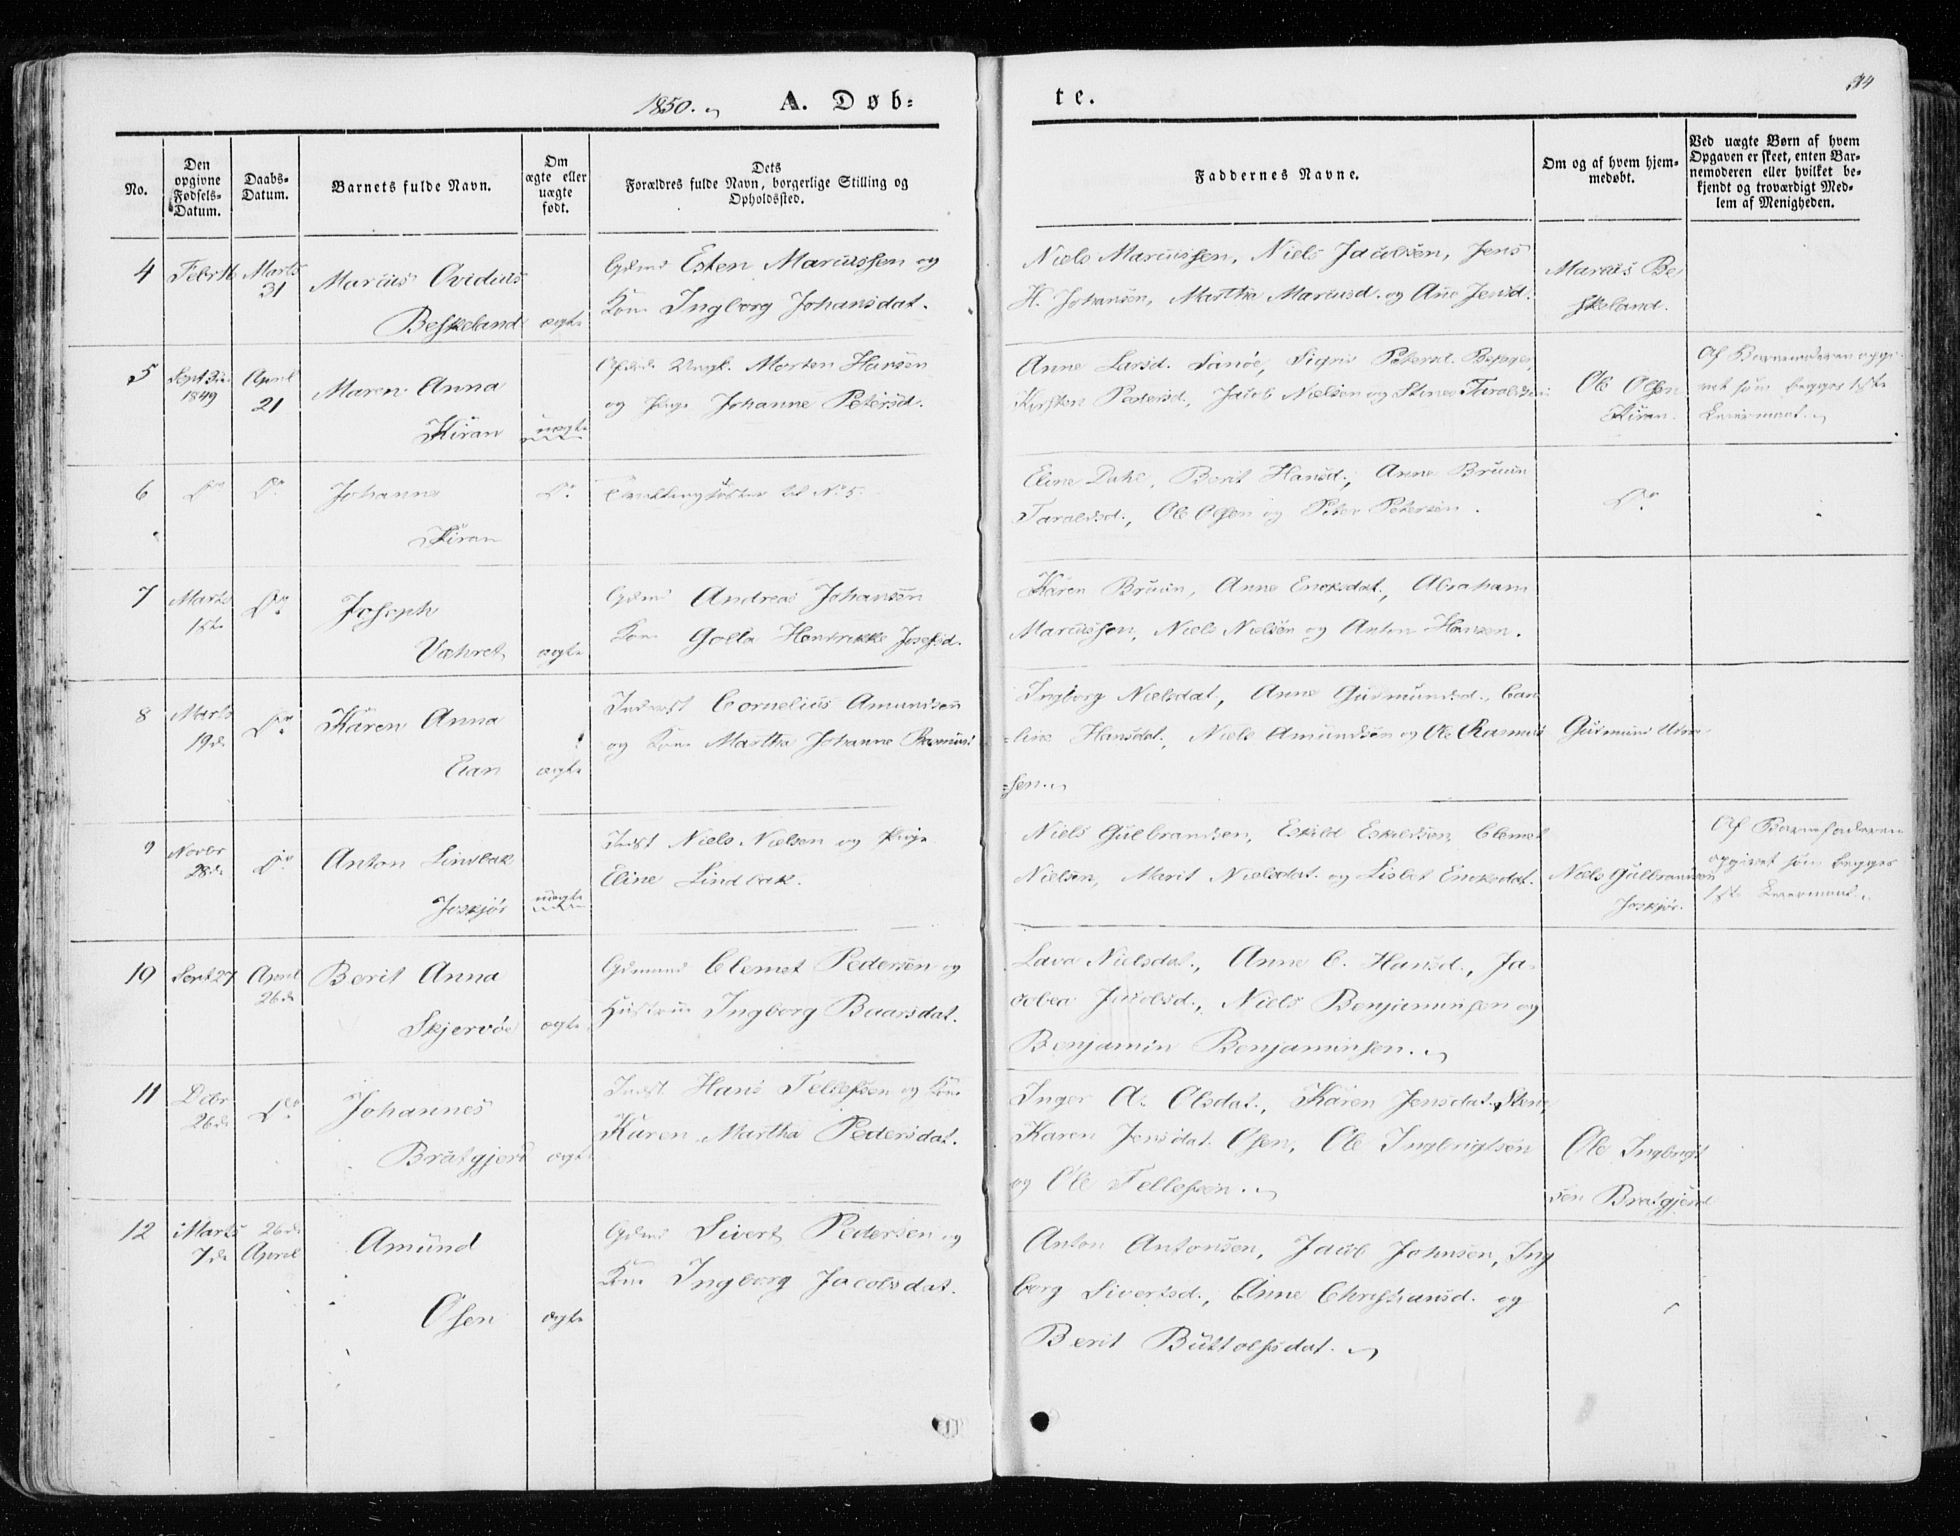 1850.
A. Døb-
te.
34
No.
Den opgivne Fødsels-Datum.
Daabs-Datum.
Barnets fulde Navn.
Om ægte eller uægte født.
Dets
Forældres fulde Navn, borgerlige Stilling og
Opholdssted.
Faddernes Navne.
Om og af hvem hjem-
medøbt.
Ved uægte Børn af hvem
Opgaven er skeet, enten Bar-
nemoderen eller hvilket be-
kjendt og troværdigt Med-
lem af Menigheden.
4 Marts 31
Marcus Ovidius
Beskeland ægte
Esten Marcussen og
Kone Ingborg Johansdat.
Niels Marcussen, Niels Jacobsen, Jens
H. Johansen, Martha Marcusd. og Ane Jensd.
Marcus Be
skeland.
5 1849 April 21
Maren Anna
Kiran uægte
Morten Hansen
og Pige Johanne Petersd.
Anne Larsd. Sanöe, Sigris Petersd.
Kirsten Pedersd., Jacob Nielsen og Stine
Ole Olsen
Kiran.
Af Barnemoderen opgi-
vet som begges 1ste
Leiermaal.
6 Do Do
Johanna
Kiran
Do
Tvillingsøster til No 5.
Eline Dahl, Berit Hansd., Anne Bruun
Taraldsd., Ole Olsen og Peter Petersen.
Do
7 Marts Do
Joseph
Væhret ægte
Gdmd Andreas Johansen
Kone Golla Hendrikke Josefsd.
Karen Bruun, Anne Ericksdat., Abraham
Marcussen, Niels Nielsen og Anton Hansen.
8 Marts 19de Do
Karen Anna
Eian ægte
Inderst Cornelius Amundsen
og Kone Martha Johanne
Ingborg Nielsdat., Anne Gudmundsd., Caro
line Hansdat., Niels Amundsen og Ole Rasmus
sen.
Gudmund
9 Novbr 28de Do
Anton Lindbak
Joskjør uægte
Indst Niels Nielsen og Pige
Eline Lindbak.
Niels Gulbrandsen, Eskild Eskildsen, Clemet
Nielsen, Marit Nielsdat. og Lisbet Ericksdat.
Niels Gulbrandsen
Joskjør.
Af Barnefaderen
opgivet som begges
1ste Leiermaal.
10 Sept 27 April 26de
Berit Anna
Skjervöe ægte
Gdmand Clemet Pedersen og
Hustrue Ingborg Baarsdat.
Lava Nielsdat., Anne C. Hansd., Ja-
cobea Jacobsd., Niels Benjaminsen og
Benjamin Benjaminsen.
11 Dcbr 26de Do
Johannes
Bratgjerd ægte
Indst. Hans Tellefsen og Kone
Karen Martha Pedersdat.
Inger A. Olsdat., Karen Jensdat. Stene,
Karen Jensdat. Osen, Ole Ingbrigtsen
og Ole Tellefsen.
Ole Ingbrigt
sen Bratgjerd
12 Marts 7de 26de April
Amund
Osen ægte
Gdmd Sivert Pedersen og
Kone Ingborg Jacobsdat.
Anton Antonsen, Jacob Johnsen, Ing
borg Sivertsd., Anne Christiansd. og
Berit Buttolfsdat.